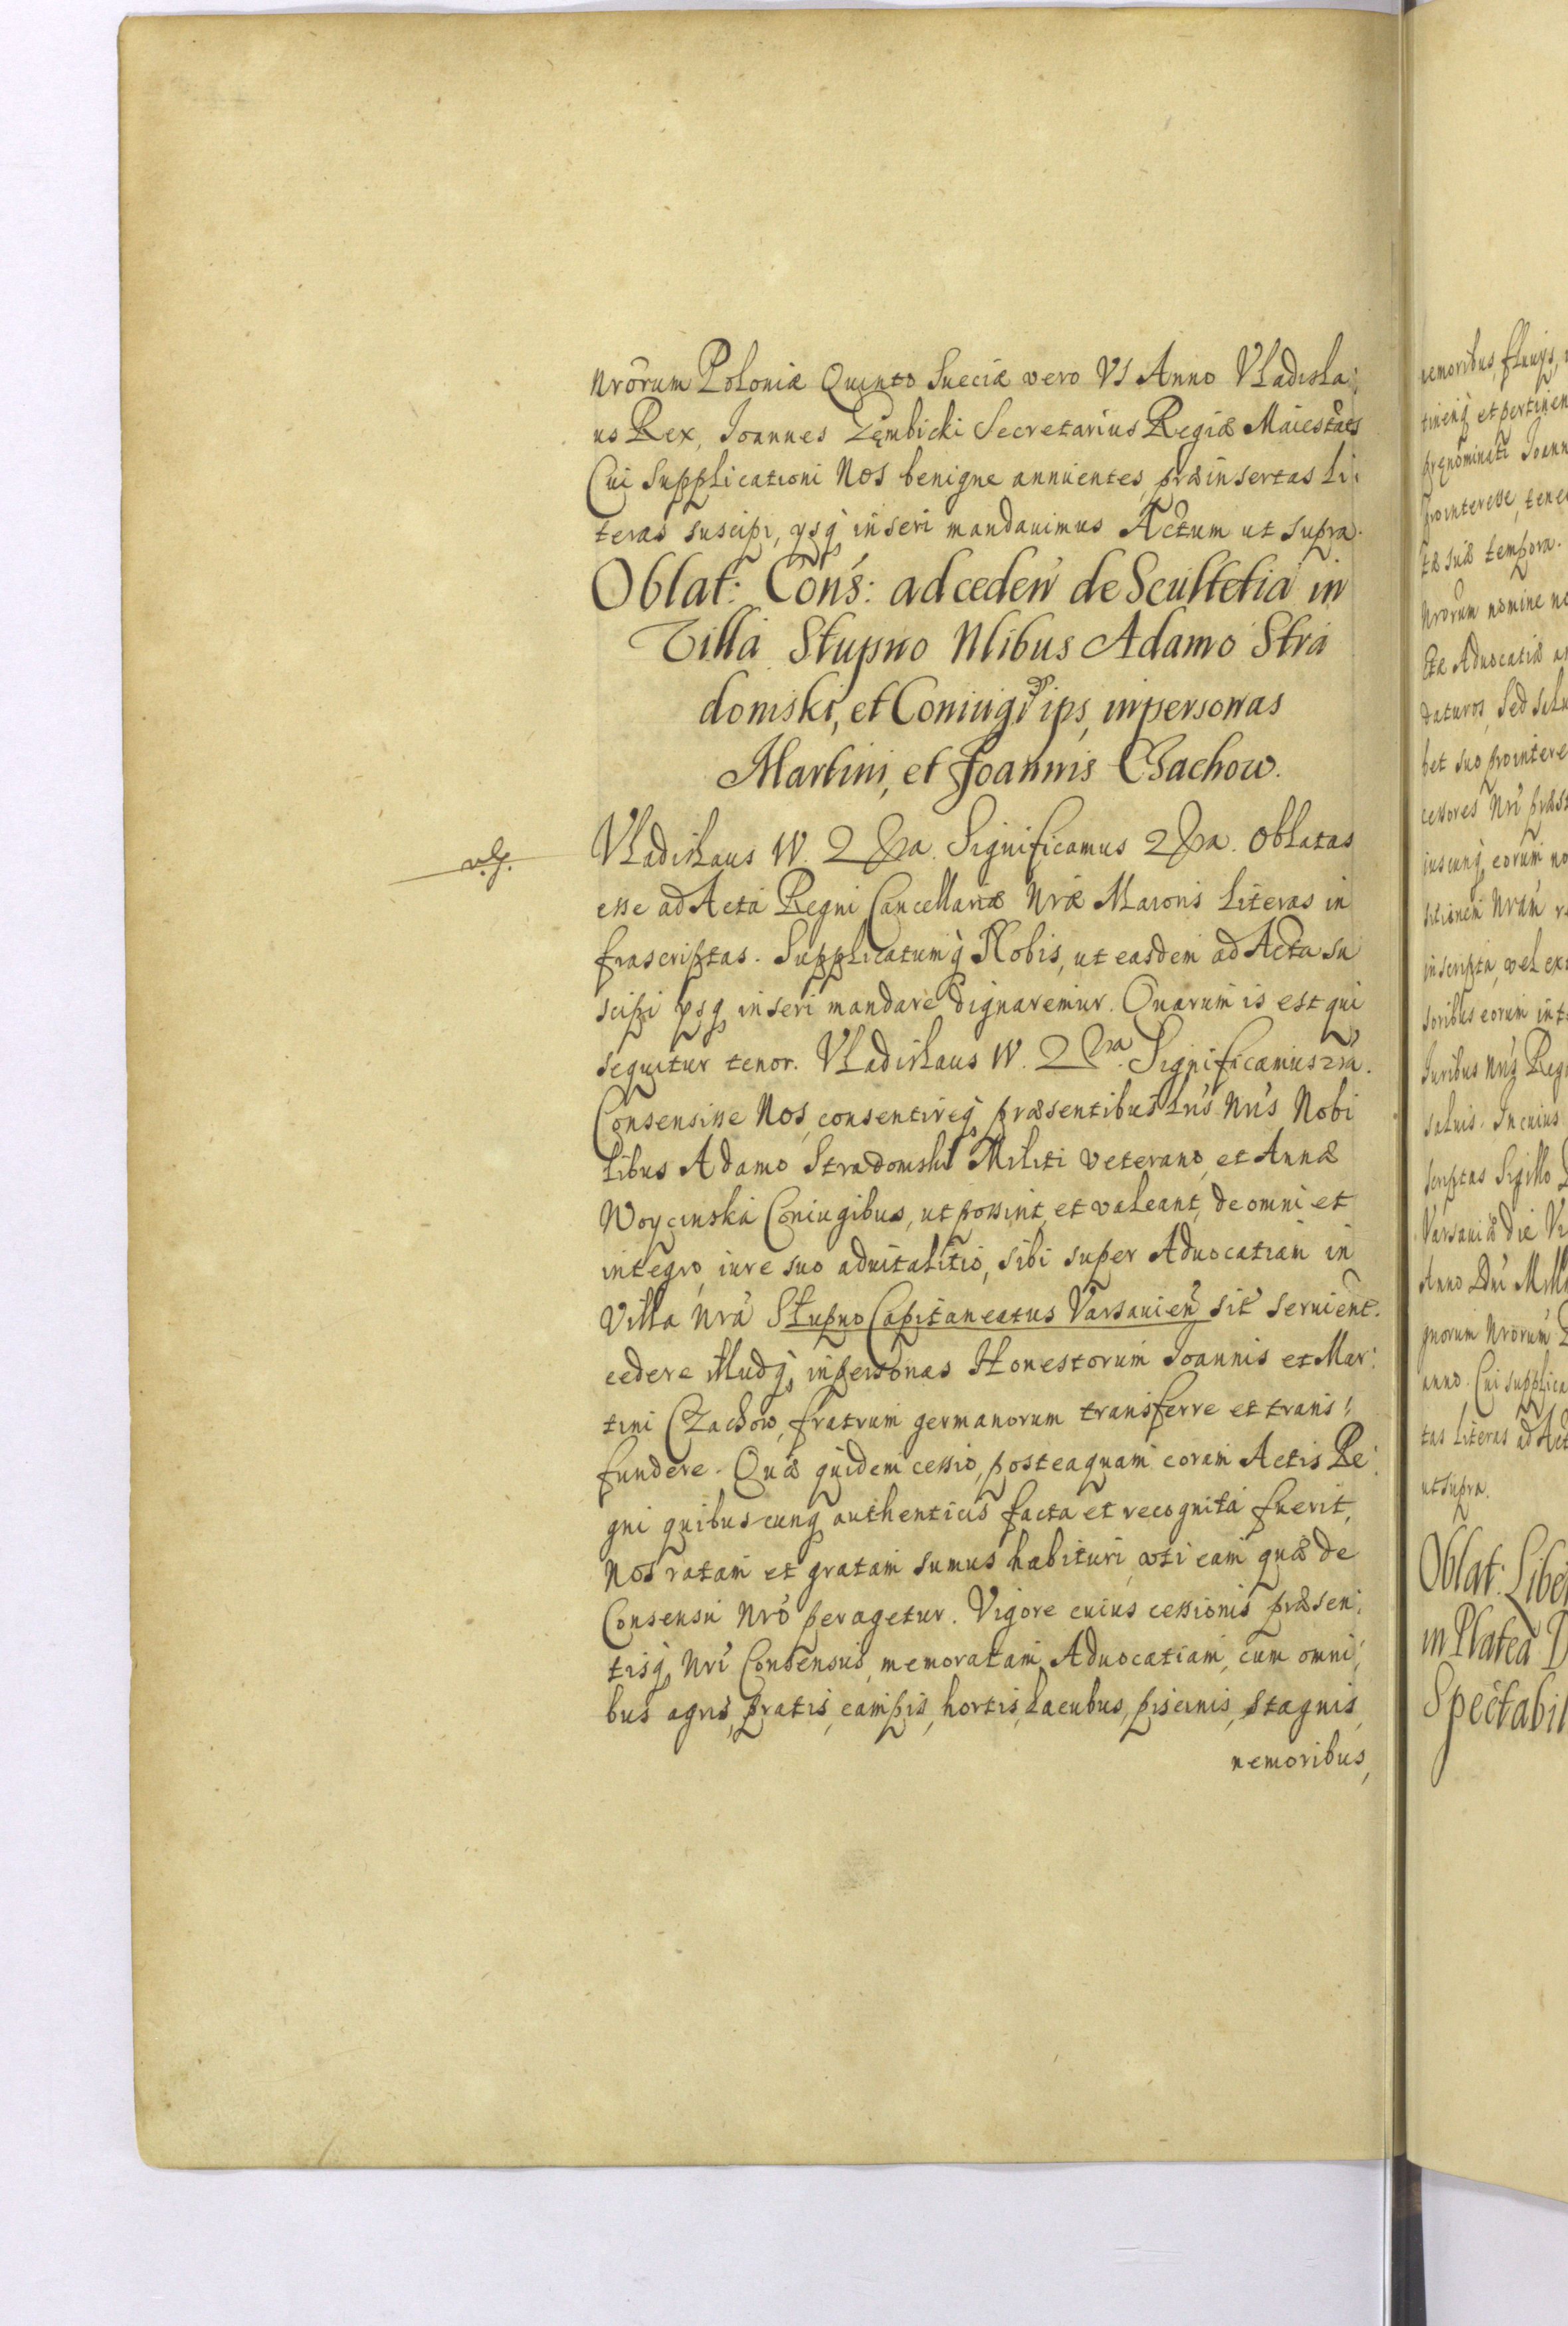 nrorum Poloniæ Quinto Sueciæ vero VI Anno Vladisla:
us Rex, Joannes Zęmbicki Secretarius Regiæ Maiestats
Cui Supplicationi Nos benigne annuentes, præinsertas Li:
teras suscipi, ysq inseri mandauimus Actum ut supra.
Oblat: Cons: ad ceden de Scultetia in
Villa Stupno Nlibus Adamo Stra
domski, et Coniugi ips, in personas
Martini, et Joannis Czachow.
Vladislaus IV. 2 &ra. Significamus 2 &ra. Oblatas
esse ad Acta Regni Cancellariæ Nræ Maioris Literas in
frascriptas. Supplicatumq Nobis, ut easdem ad Acta su
scipi ysq inseri mandare dignaremur. Quarum is est qui
sequitur tenor. Vladislaus IV. 2 &ra. Significamus
Consensisse Nos, consentireq præsentibus Lris Nris Nobi
libus Adamo Stradomski Militi veterano, et Annæ
Woycinska Coniugibus, ut possint, et valeant, de omni et
integro, iure suo aduitalitio, sibi super Aduocatiam in
Villa Nra Stupno Capitaneatus Varsauien sit seruient.
cedere illudq, in personas Honestorum Joannis et Mar:
tini Czachow, fratrum germanorum transferre et trans:
fundere. Quæ quidem cessio, posteaquam coram Actis Re:
gni quibuscunq authenticis facta et recognita fuerit,
Nos ratam et gratam sumus habituri, uti eam quæ de
Consensu Nro peragetur. Vigore cuius cessionis præsen:
tisq, Nri Consensus, memoratam Aduocatiam, cum omni:
bus agris, pratis, campis, hortis, lacubus, piscinis, stagnis,
nemoribus,
nemoribus, fluuijs,
tinenq et pertinen
prænominati Joann
pro interesse, tene
tæ suæ tempora.
Nrorum nomine
tæ Aduocatiæ
daturos, Sed
bet suo pro intere
cessores Nri præs
iuscunq, eorum no
sitionem Nram
inscripta, vel ex
soribus eorum int
Iuribus Nris Regi
saluis. In cuius
scriptas Sigillo
Varsauiæ die
Anno Dni Mill
gnorum Nrorum
anno. Cui supplica
tas Literas ad Act
ut supra.
Oblat: Liber
in Platea
Spectabil